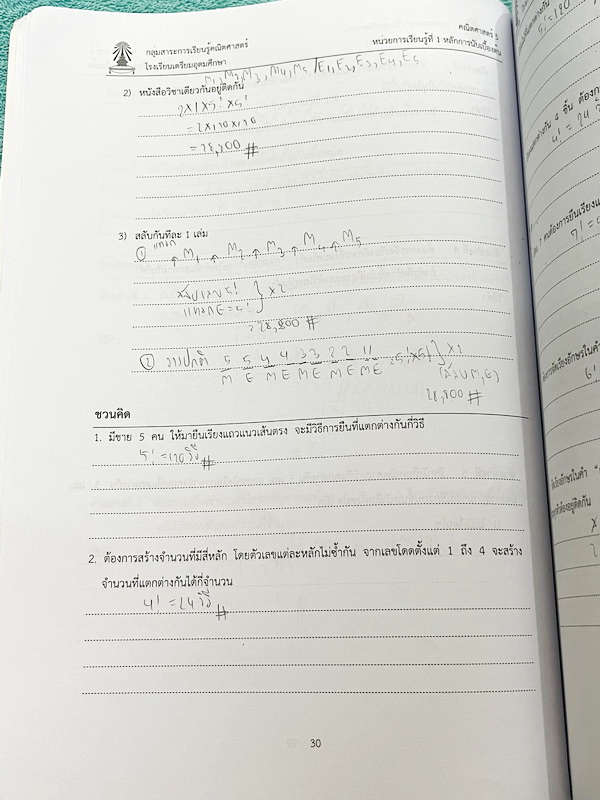 คณิตศาสตร์ 5
กลุ่มสาระการเรียนรู้คณิตศาสตร์
หน่วยการเรียนรู้ที่ 1 หลักการนับเบื้องต้น
โรงเรียนเตรียมอุดมศึกษา
M1, M2, M3, M4, M5 / E1, E2, E3, E4, E5
2) หนังสือวิชาเดียวกันอยู่ติดกัน
2×1×5! ×5!
=2×120×120
=28,800 #
3) สลับกันทีละ 1 เล่ม
① แทรก ↑ M1 ↑ M2 ↑ M3 ↑ M4 ↑ M5
แทรก E = 5! } ×2
= 28,800 #
② วางปกติ 5 5 4 4 3 3 2 2 1 1 = 5!×5! } ×2
M E M E M E M E M E (สลับ M, E)
28,800 #
ชวนคิด
1. มีชาย 5 คน ให้มายืนเรียงแถวแนวเส้นตรง จะมีวิธีการยืนที่แตกต่างกันกี่วิธี
5! =120 วิธี #
2. ต้องการสร้างจำนวนที่มีสี่หลัก โดยตัวเลขแต่ละหลักไม่ซ้ำกัน จากเลขโดดตั้งแต่ 1 ถึง 4 จะสร้าง
จำนวนที่แตกต่างกันได้กี่จำนวน
4! =24 วิธี #
30